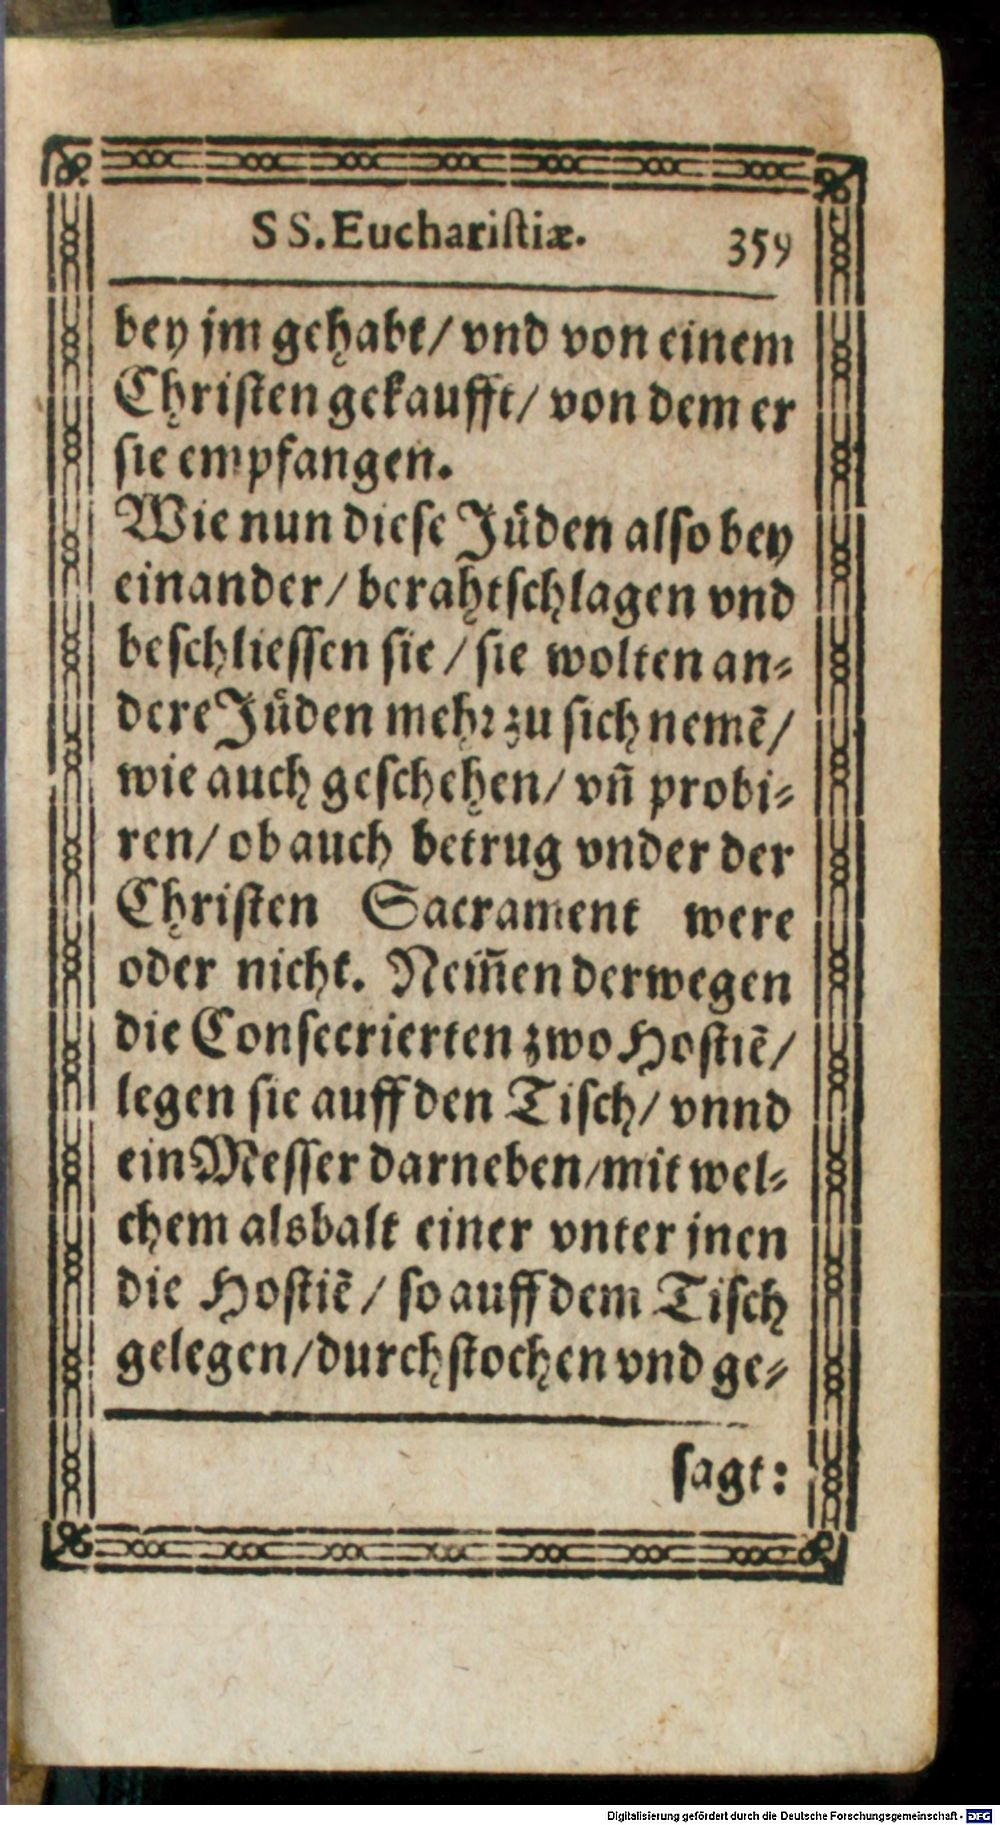 SS. Euchariſtiæ. 359
bey jm gehabt/ vnd von einem
Chriſten gekaufft/ von dem er
ſie empfangen.
Wie nun dieſe Jüden alſo bey
einander/ berahtſchlagen vnd
beſchlieſſen ſie / ſie wolten an⸗
dere Jüden mehr zu ſich nemẽ/
wie auch geſchehen/ vñ probi⸗
ren/ ob auch betrug vnder der
Chriſten Sacrament were
oder nicht. Nem̃en derwegen
die Conſecrierten zwo Hoſtiẽ/
legen ſie auff den Tiſch/ vnnd
ein Meſſer darneben/mit wel⸗
chem alsbalt einer vnter jnen
die Hoſtiẽ / ſo auff dem Tiſch
gelegen/durchſtochen vnd ge⸗
ſagt:
Digitalisierung gefördert durch die Deutsche Forschungsgemeinschaft - DFG